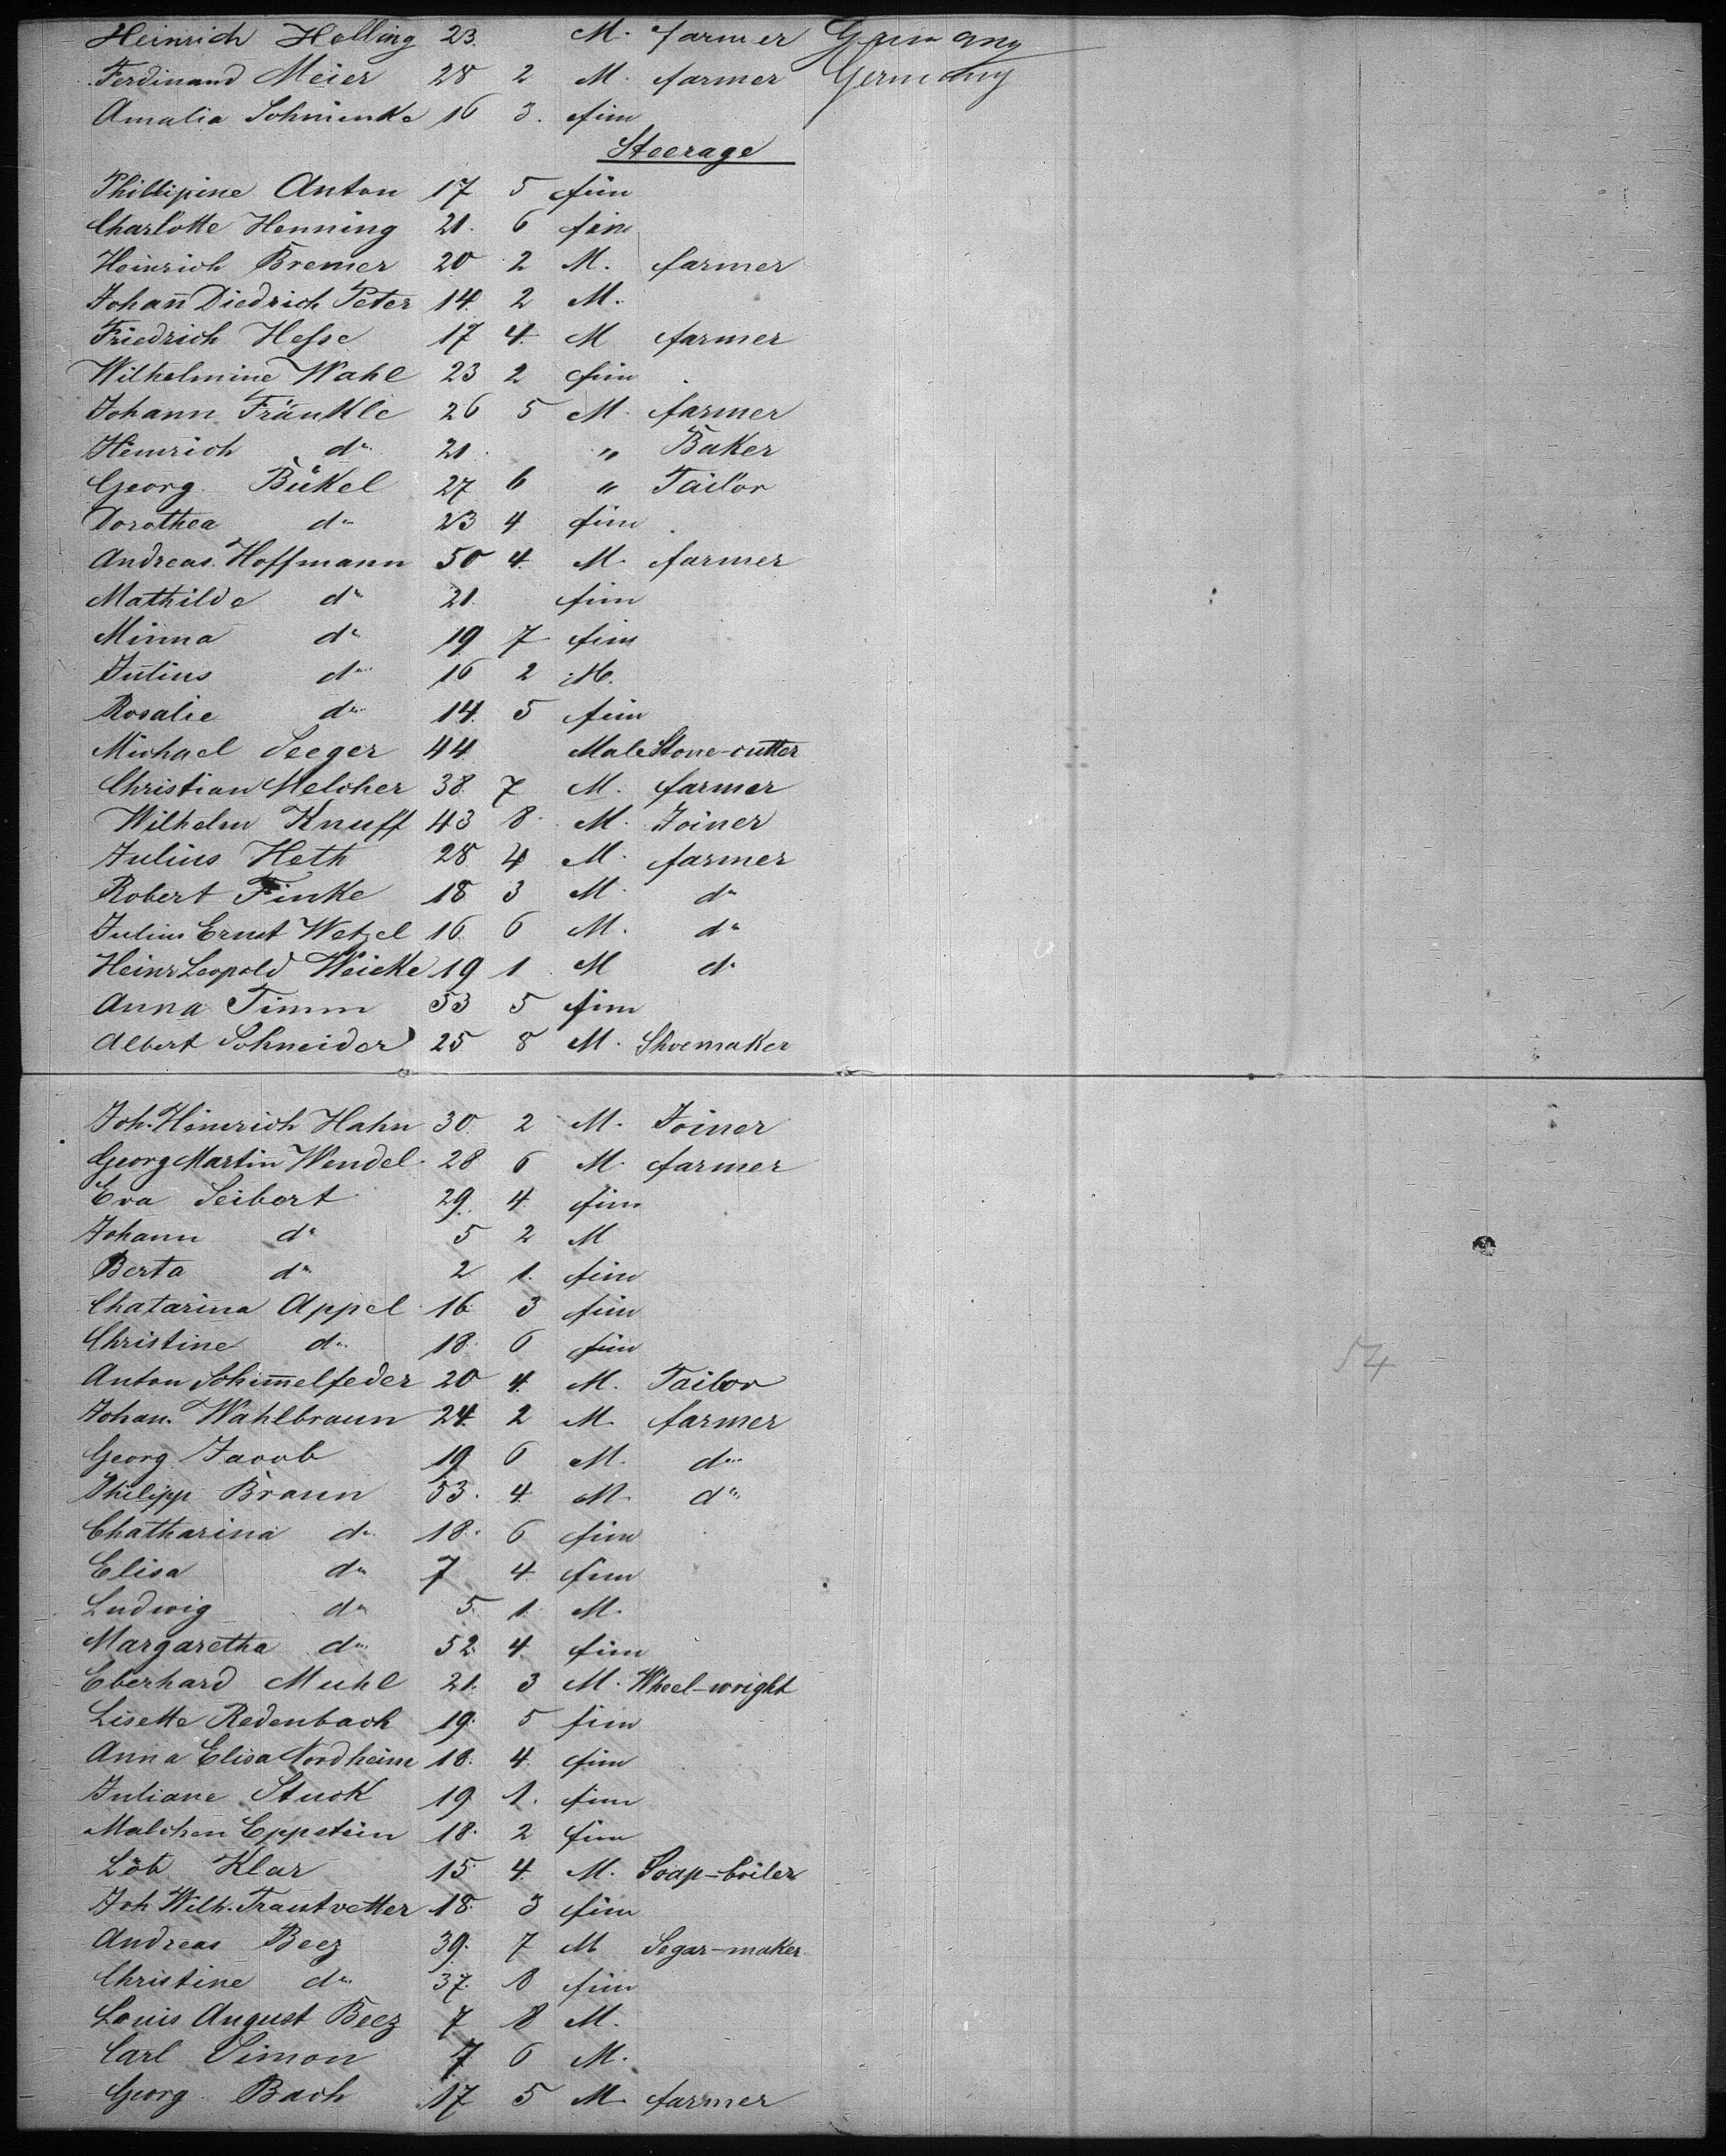 Heinrich Helling 23. M. farmer Germany
Ferdinand Meier 28 2 M. farmer Germany
Amalia Schmienke 16 3. fem
Steerage
Phillipine Anton 17 5 fem
Charlotte Henning 21. 6 fem
Heinrich Bremer 20 2 M. farmer
Johan̄ Diedrich Peter 14. 2 M.
Friedrich Hesse 17 4. M farmer
Wilhelmine Wahl 23 2 fem
Johann Fränkle 26 5 M. farmer
Heinrich do 21. " Baker
Georg Bükel 27 6 " Tailor
Dorothea do 23 4 fem
Andreas Hoffmann 50 4. M. farmer
Mathilde do 21. fem
Minna do 19 7 fem
Julius do 16 2 M.
Rosalie do 14. 5 fem
Michael Seeger 44 Male Stone-cutter
Christian Melcher 38. 7 M. farmer
Wilhelm Knuff 43 8. M. Joiner
Julius Heth 28 4 M. farmer
Robert Finke 18 3 M. do
Julius Ernst Wetzel 16 6 M. do
Heinr Leopold Weicke 19 1 M do
Anna Timm 53 5 fem
Albert Schneider 25 8 M. Shoemaker
Joh. Heinrich Hahn 30 2 M. Joiner
Georg Martin Wendel 28 6 M. farmer
Eva Seibert 29. 4 fem
Johann do 5 2 M
Berta do 2 1. fem
Chatarina Appel 16 3 fem
Christine do 18. 6 fem
Anton Schim̄elfeder 20 4. M. Tailor
Johan. Wahlbraun 24. 2 M. farmer
Georg Jacob 19 6 M. do
Philipp Braun 53. 4. M. do
Chatharina do 18. 6 fem
Elisa do 7 4 fem
Ludwig do 5. 1. M.
Margaretha do 52. 4. fem
Eberhard Muhl 21. 3 M. Wheel-wright
Lisette Redenbach 19. 5 fem
Anna Elisa Nordheim 18. 4. fem
Juliane Stuck 19. 1. fem
Malchen Eppstein 18. 2 fem
Löb Klar 15 4. M. Soap-boiler
Joh Wilh. Trautvetter 18. 3 fem
Andreas Beez 39. 7 M Segar-maker
Christine do 37. 8 fem
Louis August Beez 7 8 M.
Carl Simon 7 6 M.
Georg Bach 17 5 M farmer
54